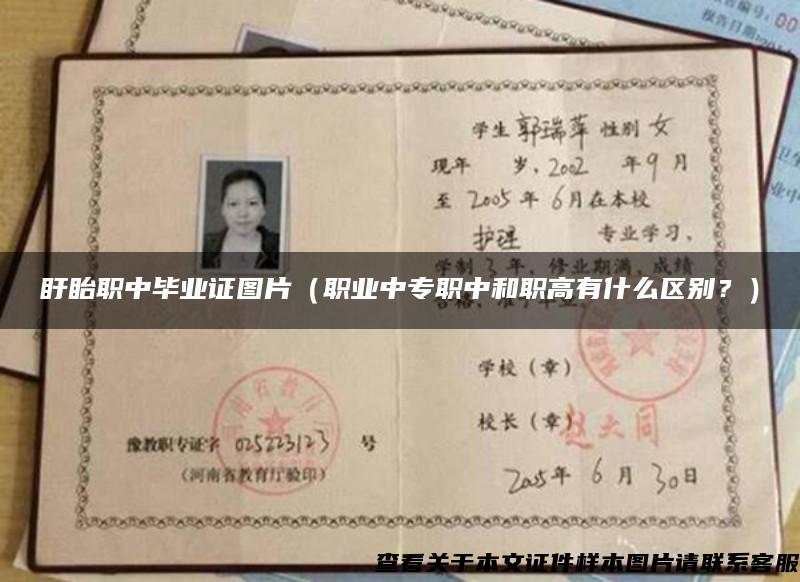 告编号: 00
报告日期: 201
学生 郭瑞萍 性别 女
现年 岁, 2002 年 9 月
至 2005 年 6 月在本校
护理 专业学习,
学制 3 年, 修业期满, 成绩
盱眙职中毕业证图片（职业中专职中和职高有什么区别？）
学校（章）
校长（章）赵大同
2005 年 6 月 30 日
河南省教育厅
豫教职专证字 025223123 号
（河南省教育厅验印）
查看关于本文证件样本图片请联系客服